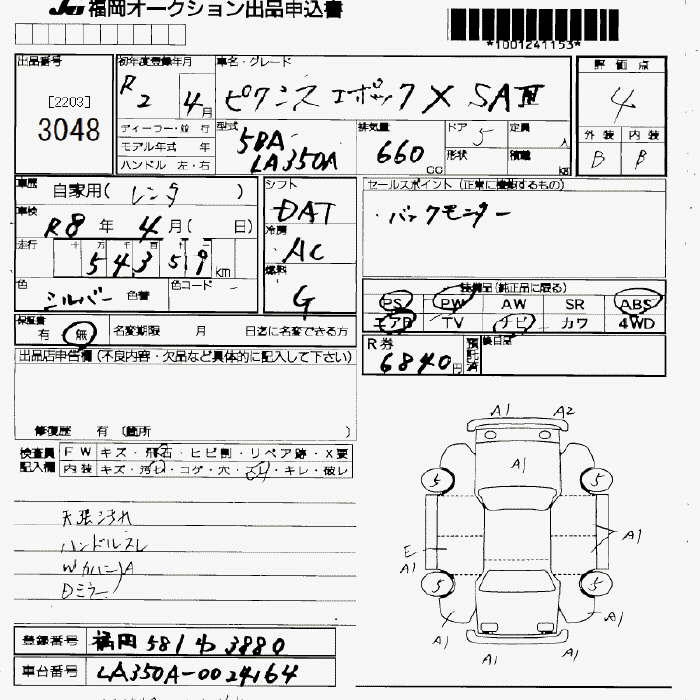 JU 福岡オークション出品申込書
*1001241153*
出品番号
[2203]
3048
初年度登録年月
R2 4月
車名・グレード
エポック X SAⅢ
評価点
4
外装 内装
B B
ディーラー・並行
モデル年式 年
ハンドル 左・右
型式
5BA
LA350A
排気量
660 cc
ドア 5
定員 人
形状
積載 kg
車歴 自家用( レンタ )
車検 R8年 4月( 日)
走行 十 万 千 百 十 一
54359 km
色 シルバー 色替
色コード
シフト
DAT
冷房
AC
燃料
G
セールスポイント (正常に機能するもの)
・バックモニター
装備品(純正品に限る)
PS PW AW SR ABS
エアB TV ナビ カワ 4WD
保証書
有 無 名変期限 月 日迄に名変できる方
R券
6840円
預託済
後日品
出品店申告欄 (不良内容・欠品など具体的に記入して下さい)
修復歴 有 (箇所 )
検査員 FW キズ・飛石・ヒビ割・リペア跡・X要
記入欄 内装 キズ・汚れ・コゲ・穴・スレ・キレ・破レ
天張汚れ
ハンドルスレ
Wカバー)A
Dミラー
A1 A2
A1
5 5
E A1
A1
5 5
A1 A1
A1 A1
登録番号 福岡 581 わ 3880
車台番号 LA350A-0024164